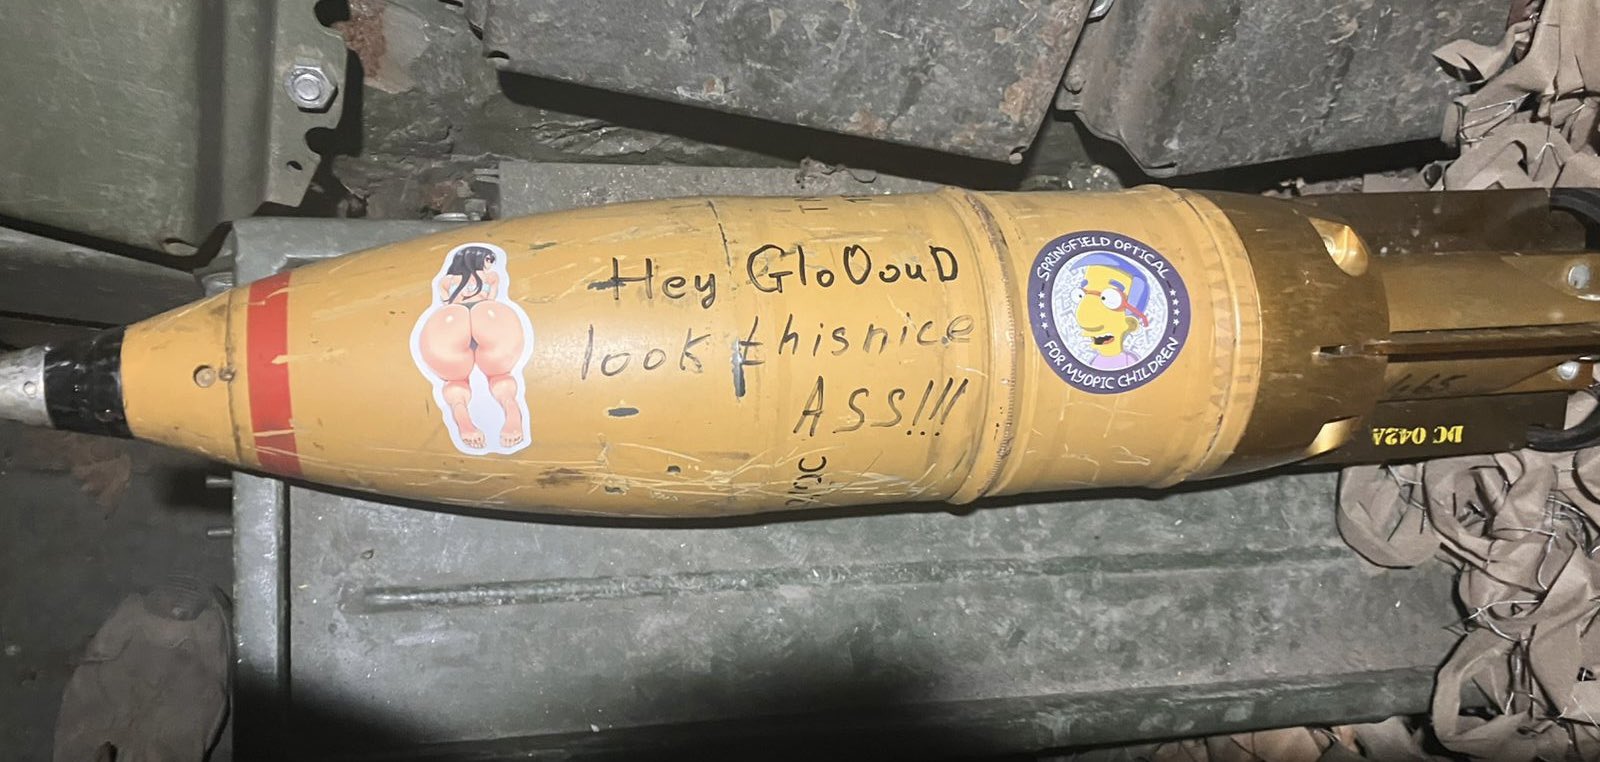 Hey GloOouD
look thisnice
ASS!!!
SPRINGFIELD OPTICAL
FOR MYOPIC CHILDREN
DC 042A